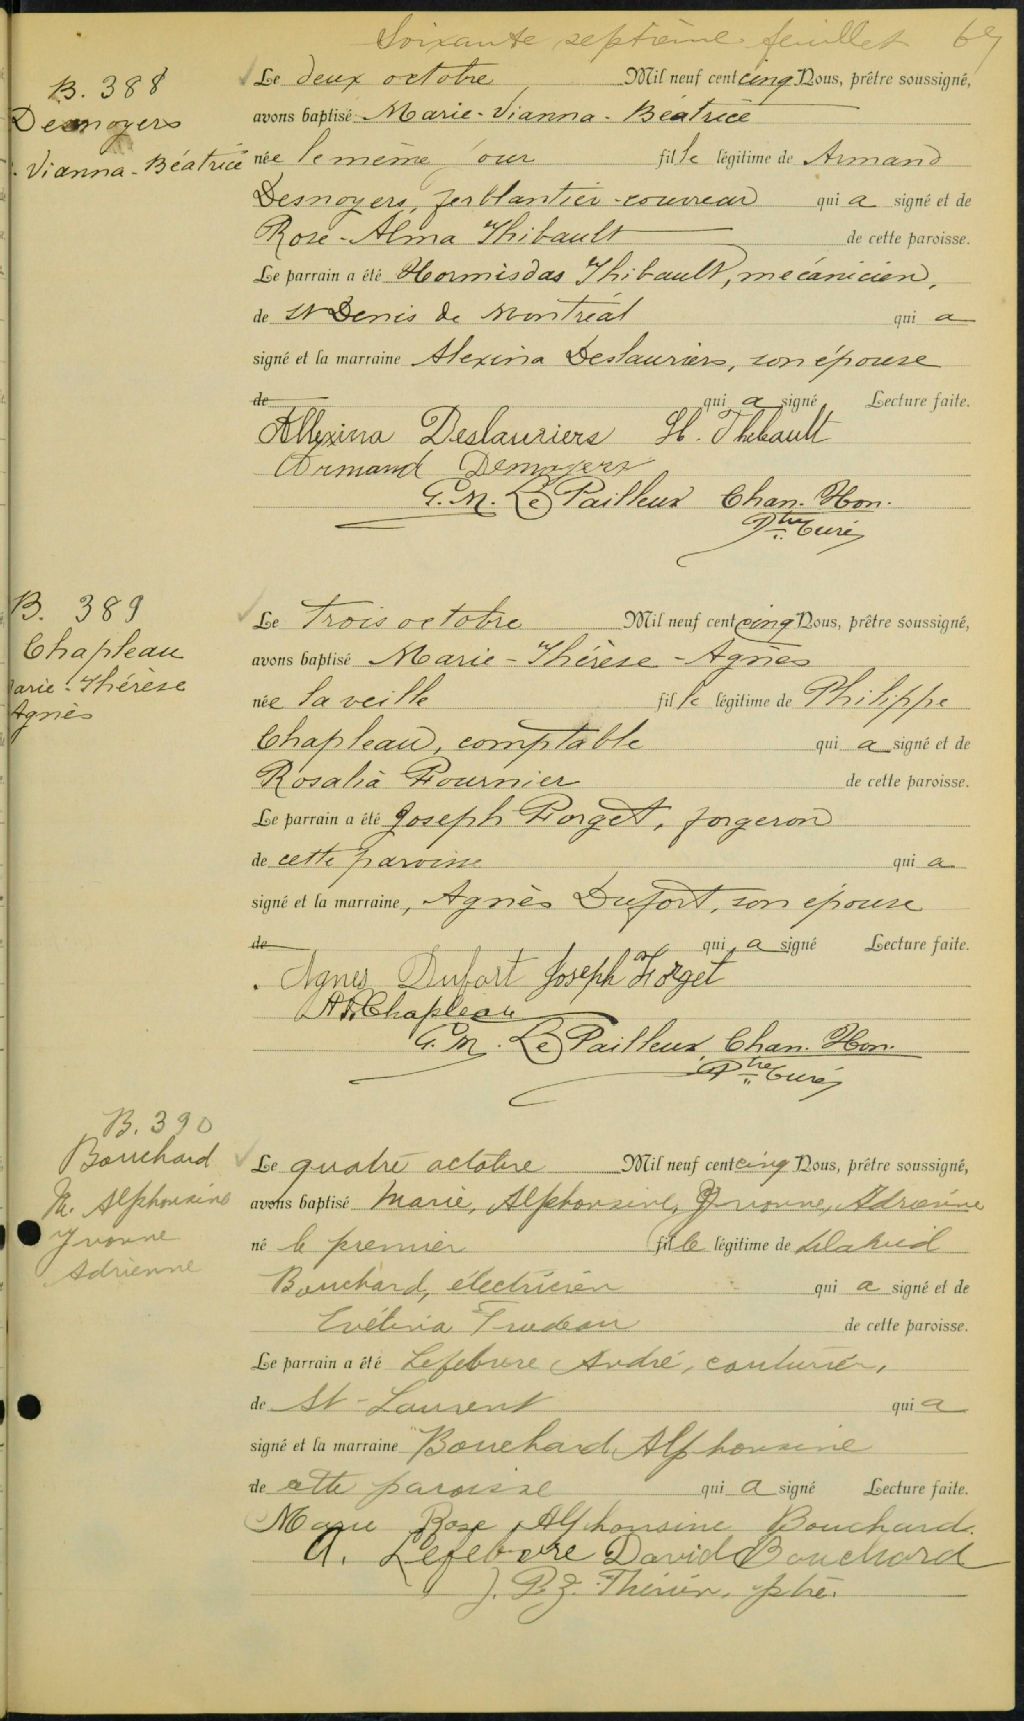 Soixante septième feuillet 67
B. 388
Desnoyers
Vianna-Béatrice
Le deux octobre Mil neuf cent cinq Nous, prêtre soussigné,
avons baptisé Marie-Vianna-Béatrice
née le même jour fille légitime de Armand
Desnoyers, ferblantier-couvreur qui a signé et de
Rose-Alma Thibault de cette paroisse.
Le parrain a été Hormisdas Thibault, mécanicien,
de St Denis de Montréal qui a
signé et la marraine Alexina Deslauriers, son épouse
de qui a signé Lecture faite.
Allexina Deslauriers H. Thibault
Armand Desnoyers
G. M. Le Pailleux Chan. Hon.
Ptre Curé
B. 389
Chapleau
Marie-Thérèse
Agnès
Le trois octobre Mil neuf cent cinq Nous, prêtre soussigné,
avons baptisé Marie-Thérèse-Agnès
née la veille fille légitime de Philippe
Chapleau, comptable qui a signé et de
Rosalia Fournier de cette paroisse.
Le parrain a été Joseph Forget, forgeron
de cette paroisse qui a
signé et la marraine, Agnès Dufort, son épouse
de qui a signé Lecture faite.
Agnes Dufort Joseph Forget
Chapleau
G. M. Le Pailleux, Chan. Hon.
Ptre Curé
B. 390
Bouchard
M. Alphonsine
Yvonne
Adrienne
Le quatre octobre Mil neuf cent cinq Nous, prêtre soussigné,
avons baptisé Marie, Alphonsine, Yvonne, Adrienne
né le premier fille légitime de David
Bouchard, électricien qui a signé et de
Evélina Trudeau de cette paroisse.
Le parrain a été Lefebvre André, couturier,
de St-Laurent qui a
signé et la marraine Bouchard Alphonsine
de cette paroisse qui a signé Lecture faite.
Marie Rose Alphonsine Bouchard.
A. Lefebvre David Bouchard
J. P. Z. Thérien, ptre.